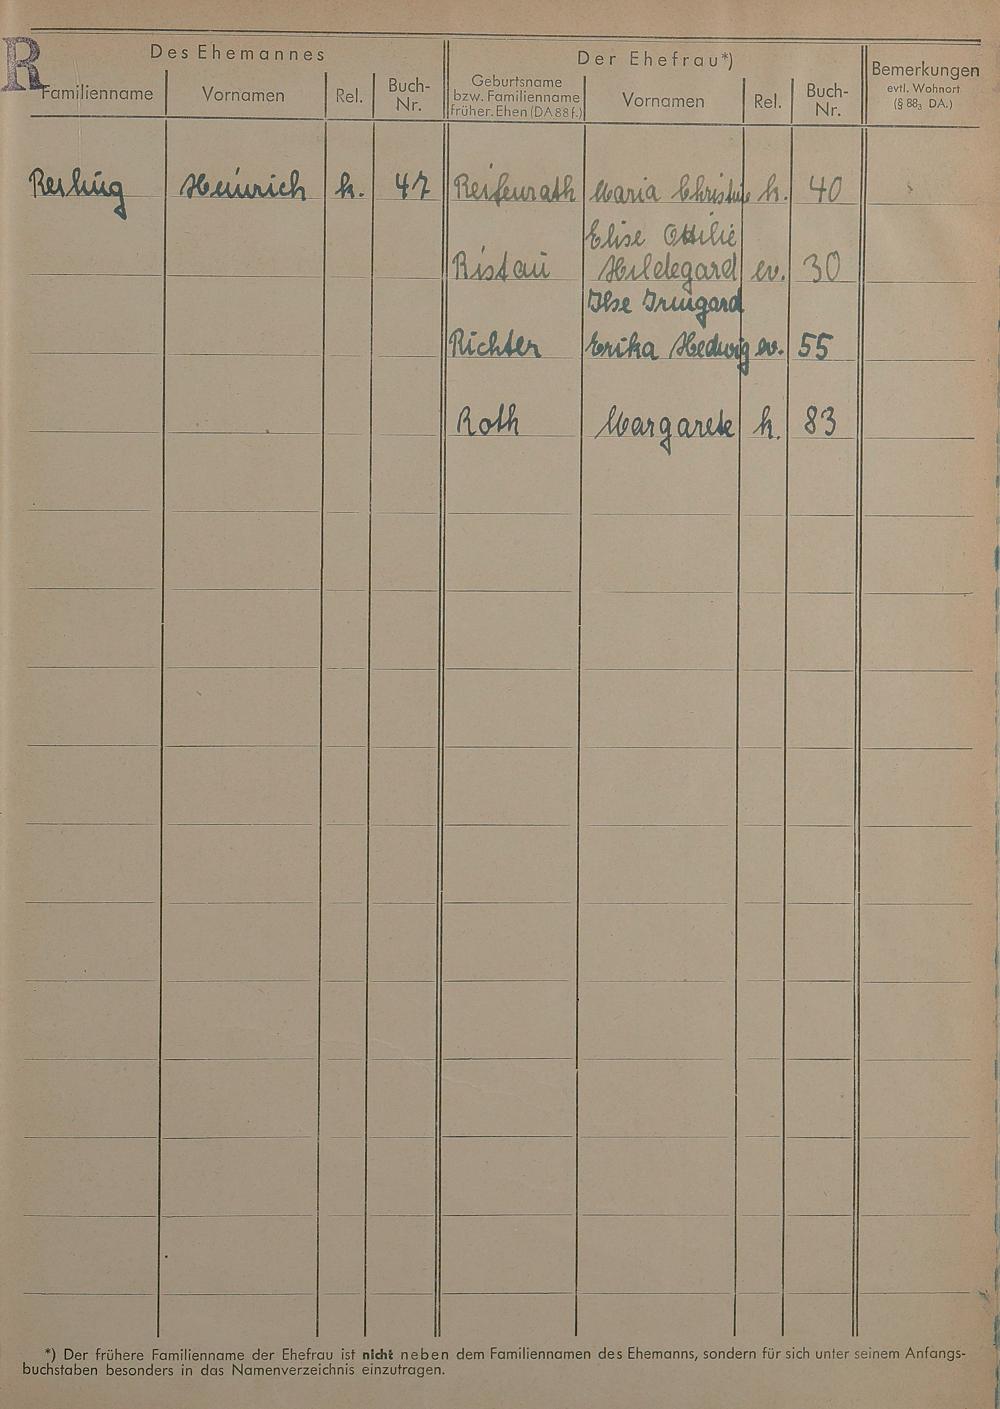 R
Des Ehemannes
Der Ehefrau*)
Familienname
Vornamen
Rel.
Buch-
Nr.
Geburtsname
bzw. Familienname
früher. Ehen (DA 88 f.)
Vornamen
Rel.
Buch-
Nr.
Bemerkungen
evtl. Wohnort
(§ 88₃ DA.)
Heinrich k. 47 Reifenrath Maria Christine k. 40
Elise Ottilie
Ristau Hildegard ev. 30
Ilse Irmgard
Richter Erika Hedwig ev. 55
Roth Margarete k. 83
*) Der frühere Familienname der Ehefrau ist nicht neben dem Familiennamen des Ehemanns, sondern für sich unter seinem Anfangs-
buchstaben besonders in das Namenverzeichnis einzutragen.